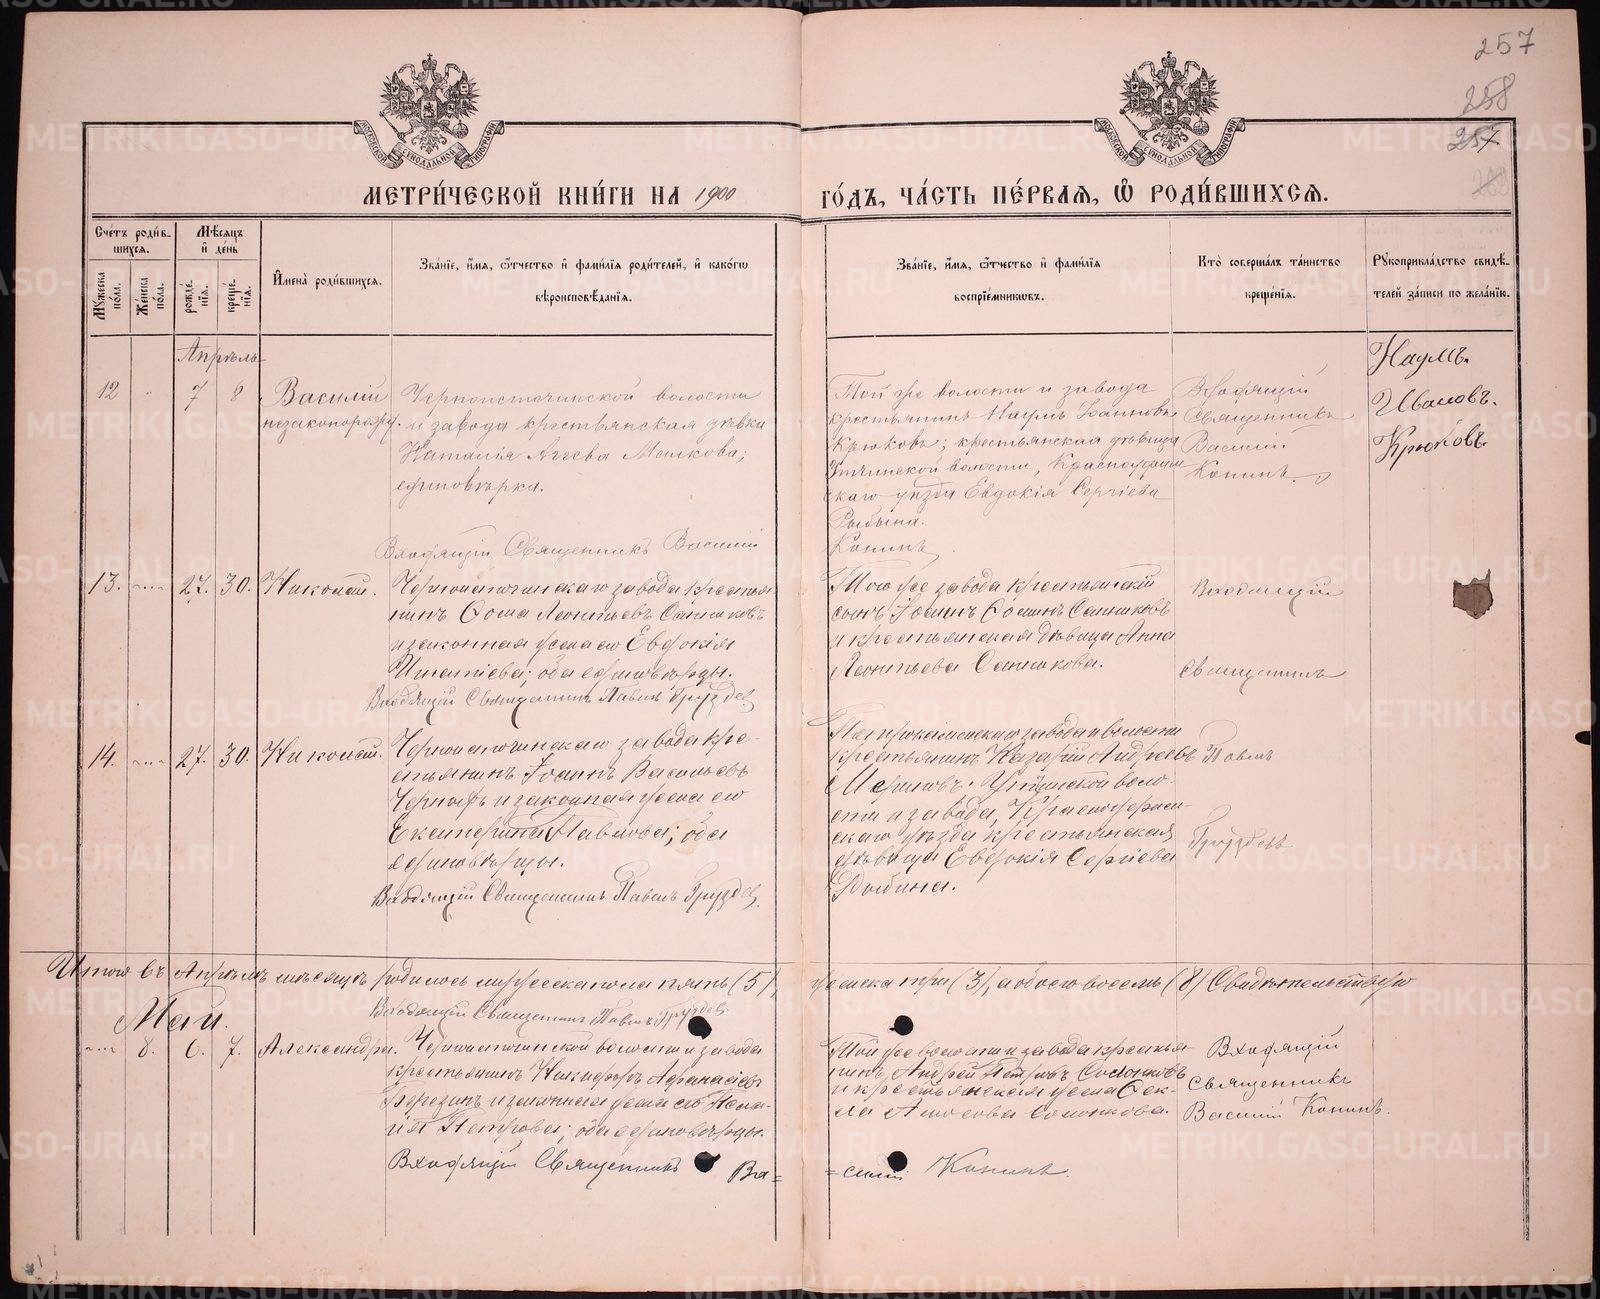 257
258
257
МОСКОВСКОЙ СѴНОДАЛЬНОЙ ТИПОГРАФІИ
МОСКОВСКОЙ СѴНОДАЛЬНОЙ ТИПОГРАФІИ
МЕТРИ́ЧЕСКОЙ КНИ́ГИ НА 1900 ГО́ДЪ, ЧА́СТЬ ПЕ́РВАЯ, Ѡ РОДИ́ВШИХСЯ.
Сче́тъ роди́в-
шихся.
Мѣ́сяцъ
и҆ де́нь
Му́жеска по́ла.
Же́нска по́ла.
рожде́нїя.
креще́нїя.
И҆мена̀ роди́вшихся.
Зва́нїе, и҆́мя, ѻ҆́тчество и҆ фами́лїя роди́телей, и҆ како́гѡ
вѣроисповѣ́данїя.
Зва́нїе, и҆́мя, ѻ҆́тчество и҆ фами́лїя
воспрїе́мникѡвъ.
Кто̀ соверша́лъ та́инство
креще́нїя.
Рꙋкоприкла́дство свидѣ́-
телей за́писи по жела́нїю.
Апрѣль
12 " 7 8
Василій
незаконорожд.
Черноисточинской волости
и завода крестьянская дѣвка
Наталія Аггева Малкова;
единовѣрка.
Той же волости и завода
крестьянинъ Наумъ Іоанновъ
Крюковъ; крестьянская дѣвица
Уткинской волости, Красноуфим
скаго уѣзда Евдокія Сергіева
Рыбина.
Входящій
Священникъ
Василій
Копинъ.
Наумъ.
Ивановъ.
Крюковъ
Входящій Священникъ Василій
Копинъ
13. 27. 30. Никонъ.
Черноисточинскаго завода крестья
нинъ Ѳома Леонтьевъ Санниковъ
и законная жена его Евдокія
Игнатіева; оба единовѣрцы.
Входящій Священникъ Павелъ Груздев
Того же завода крестьянскій
сынъ Іоаннъ Ѳоминъ Санниковъ
и крестьянская дѣвица Анна
Леонтьева Санникова.
Входящій
Священникъ
14. 27. 30. Никонъ.
Черноисточинскаго завода кре-
стьянинъ Іоаннъ Васильевъ
и законная жена его
Екатерина Павлова; оба
единовѣрцы.
Входящій Священникъ Павелъ Груздев.
Петрокаменскаго завода и волости
крестьянинъ Назарій Андреевъ
Мериновъ. Уткинской воло-
сти и завода, Красноуфим-
скаго уѣзда крестьянская
дѣвица Евдокія Сергіева
Рыбина.
Павелъ
Груздевъ
Итого въ Апрѣлѣ мѣсяцѣ родилось мужеска пола пять (5), женска три (3), а обоего восемь (8) Свидѣтельствую
Входящій Священникъ Павелъ Груздев.
Май.
8. 6. 7. Александра.
Черноисточинской волости и завода
крестьянинъ Никифоръ Аѳанасіевъ
Березинъ и законная жена его Пела-
гія Петрова; оба единовѣрцы.
Той же волости и завода крестья-
нинъ Андрей Петровъ Солонковъ
и крестьянская жена Ѳек-
ла Амосова Солонкова.
Входящій
Священникъ
Василій Копинъ.
Входящій Священникъ Ва=
=силій Копинъ.
METRIKI.GASO-URAL.RU